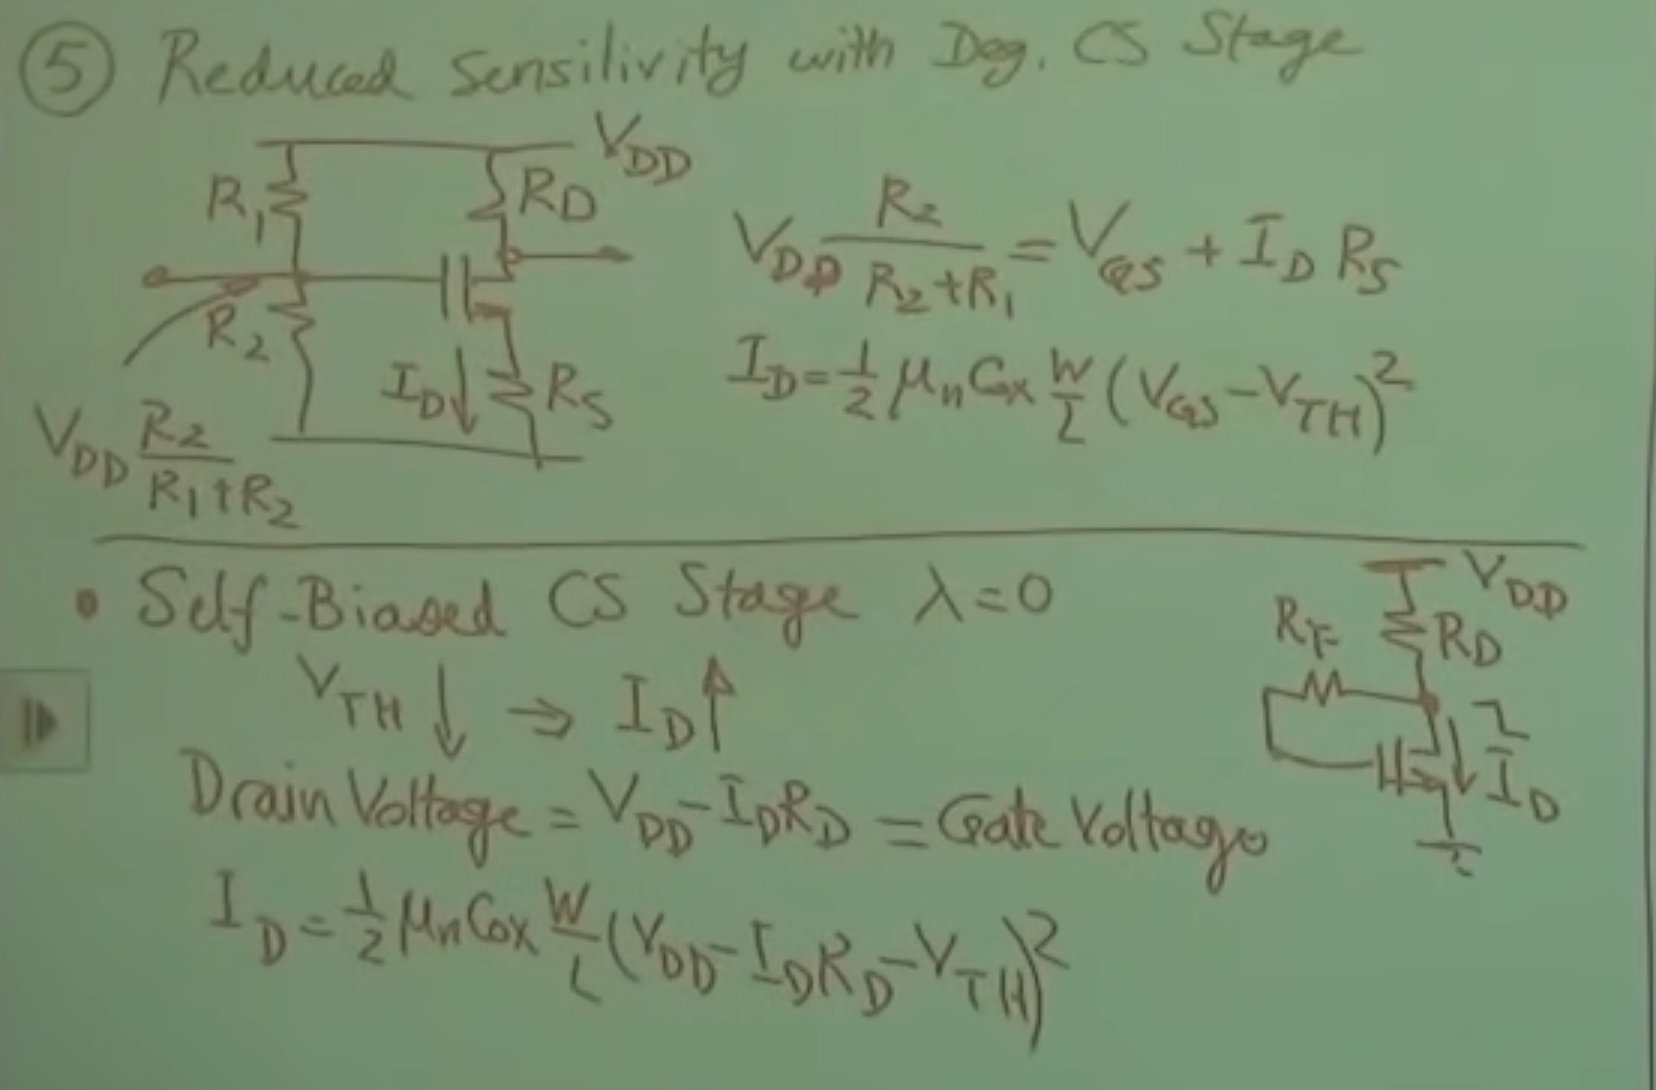 ⑤ Reduced Sensilivity with Deg. CS Stage
V_DD
R_1
R_D
R_2
I_D↓
R_S
V_DD R_2/(R_1+R_2)
V_DD R_2/(R_2+R_1) = V_GS + I_D R_S
I_D = 1/2 μ_n Cox W/L (V_GS - V_TH)^2
• Self-Biased CS Stage λ=0
V_TH ↓ ⇒ I_D ↑
Drain Voltage = V_DD - I_D R_D = Gate Voltage
I_D = 1/2 μ_n Cox W/L (V_DD - I_D R_D - V_TH)^2
V_DD
R_F
R_D
I_D